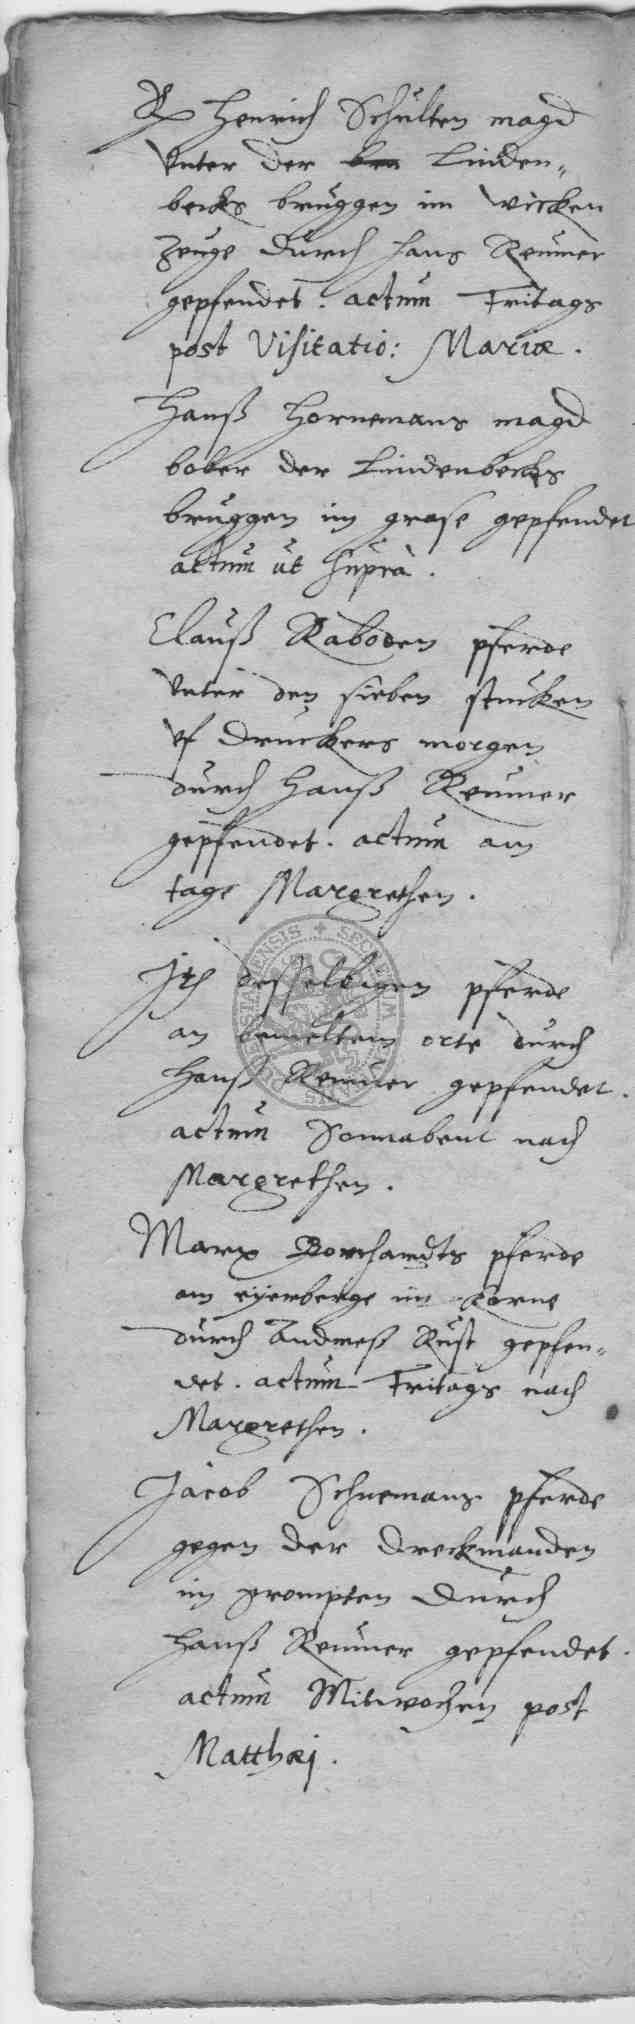 Henrich Schulten magd
Unter der Linden-
becks bruggen im wicken
zeuge durch Hans Reumer
gepfendet. actum Fritags
post Visitatio: Mariæ.
Hanß Hornemans magd
bober der Lindenbecks
bruggen im grase gepfendet
actum ut supra.
Clauß Raboden pferde
Unter den sieben stucken
uf Druckers morgen
durch Hanß Reumer
gepfendet. actum am
tage Margrethen.
desselbigen pferde
an bemeltem orte durch
Hanß Reumer gepfendet.
actum Sonnabent nach
Margrethen.
Marx Borchardts pferde
am eyerberge im Korne
durch Andreß Rust gepfen-
det. actum Fritags nach
Margrethen.
Jacob Schnemans pferde
gegen der
im durch
Hanß Reumer gepfendet.
actum Mitwochen post
Matthæj.